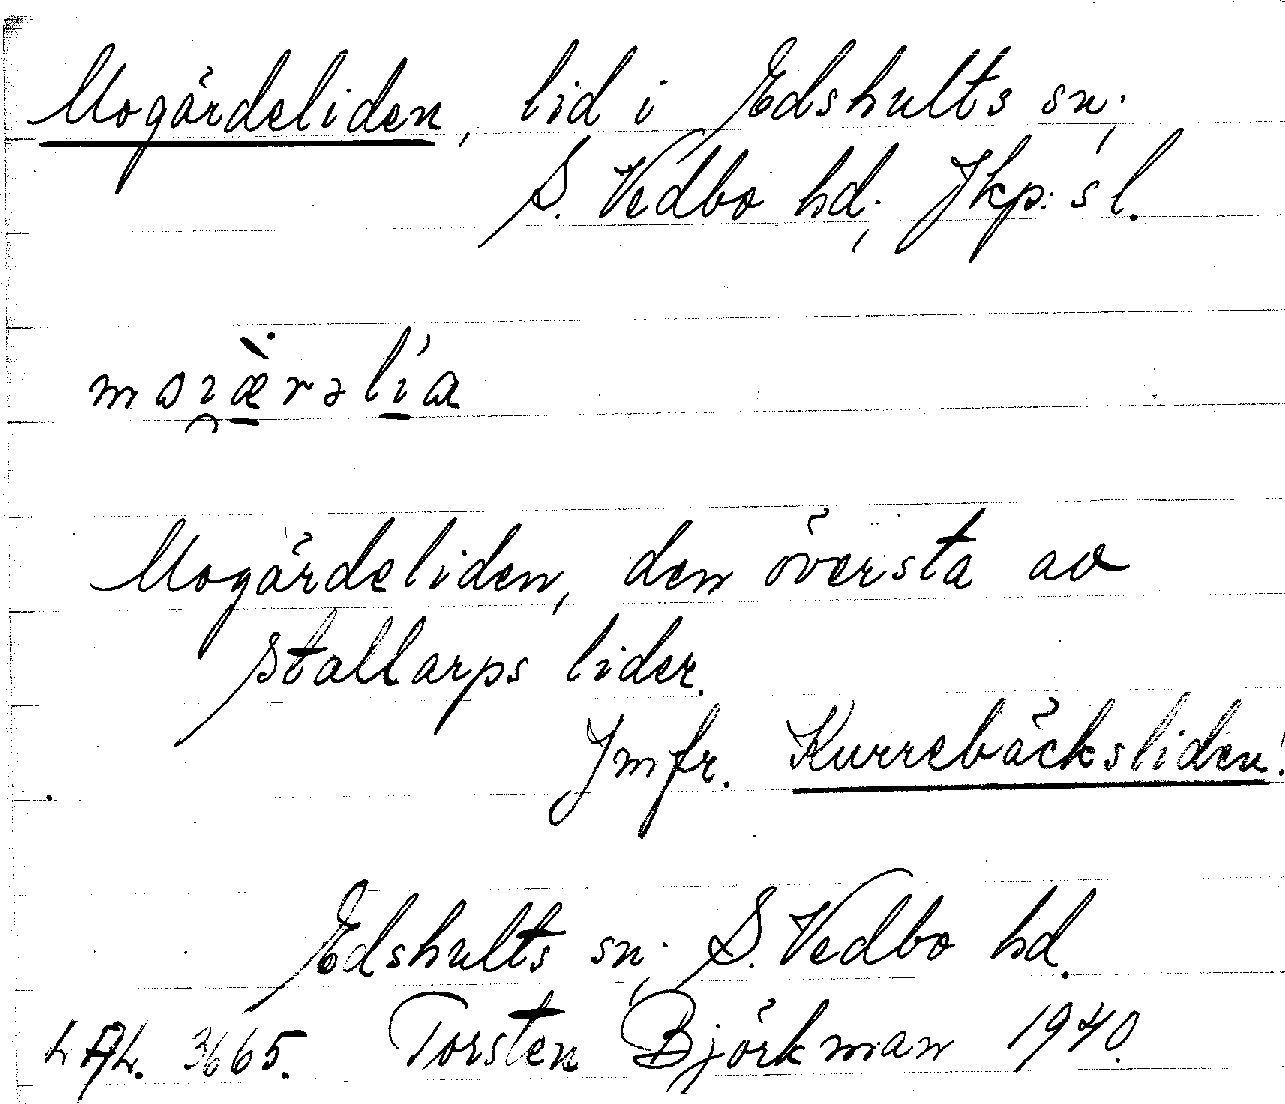 Mogärdeliden, lid i Edshults sn;
S. Vedbo hd; Jkp:s l.
Mogärdeliden, den översta av
Stallarps lider.
Jmfr. Kurrebäcksliden!
Edshults sn; S. Vedbo hd.
LAL. 3665. Torsten Björkman 1940.